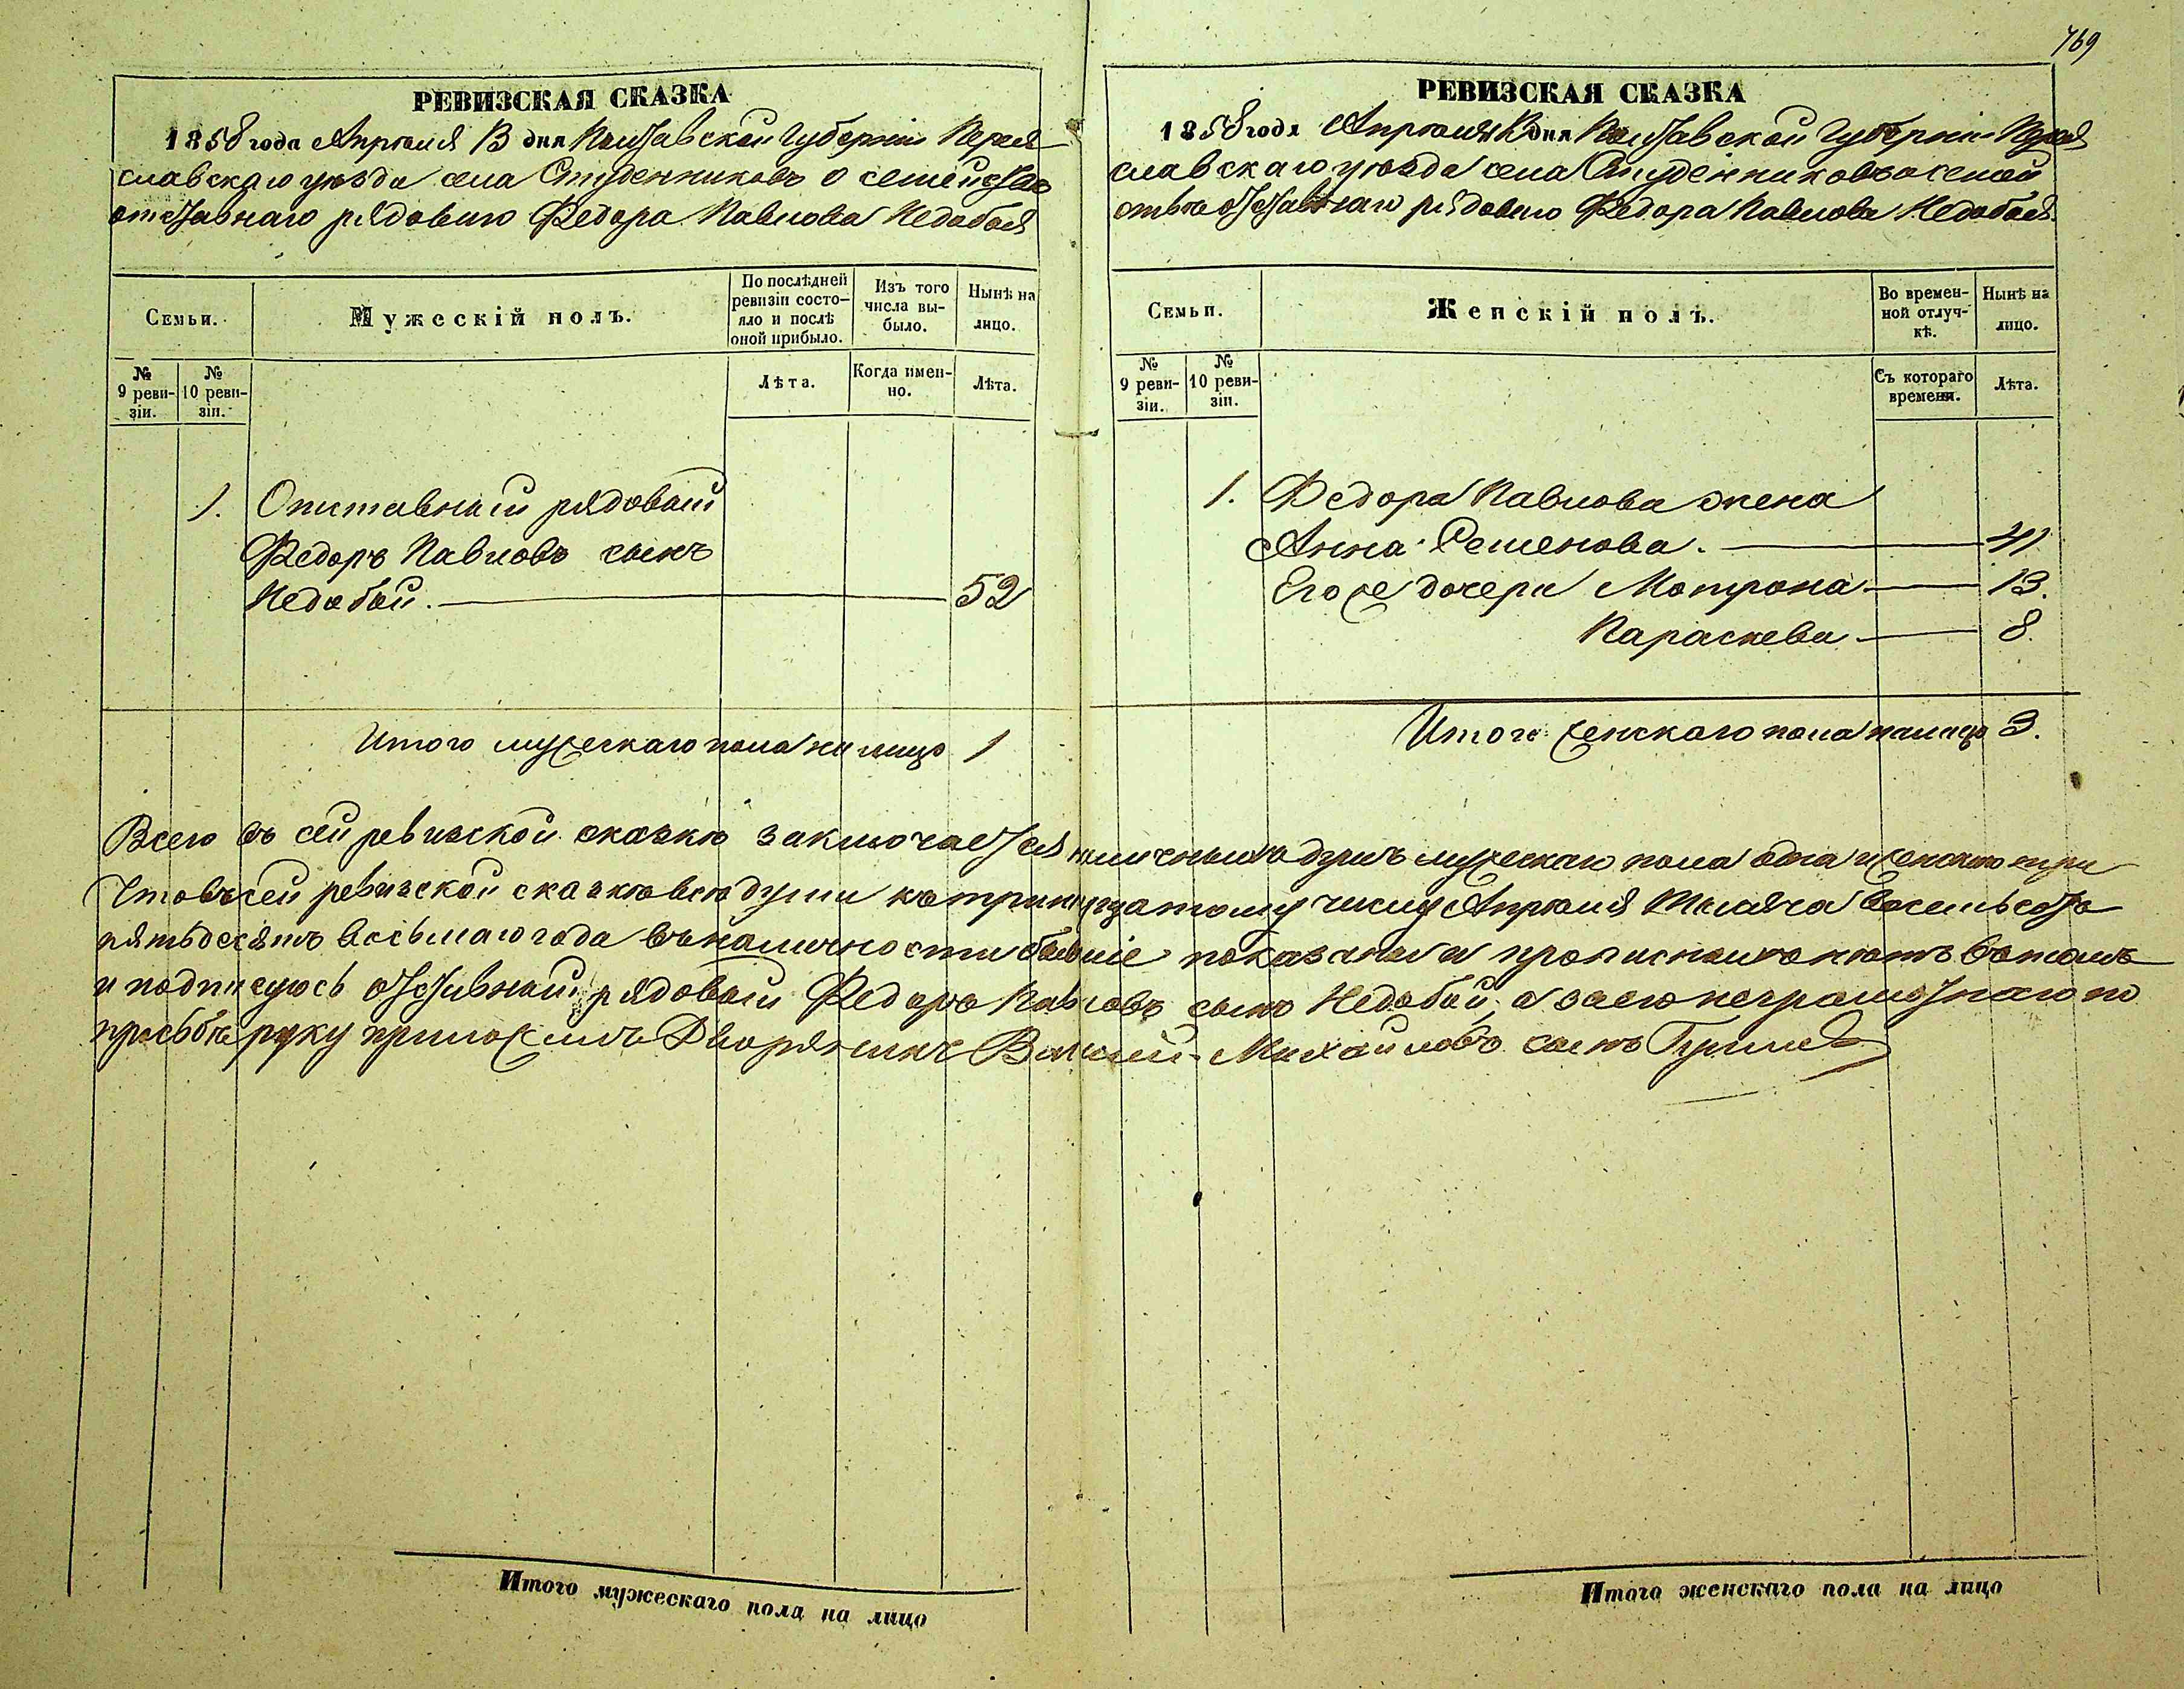 769
РЕВИЗСКАЯ СКАЗКА
1858 года Апрѣля 13 дня Полтавской Губерніи Перея
славскаго уѣзда села Студенниковъ о семействѣ
отставнаго рядоваго Федора Павлова Недобоя
Семьи.
Мужескій полъ.
По послѣдней ревизіи состояло и послѣ оной прибыло.
Изъ того числа выбыло.
Нынѣ на лицо.
№ 9 ревизіи.
№ 10 ревизіи.
Лѣта.
Когда именно.
Лѣта.
1. Отставный рядовый
Федоръ Павловъ сынъ
Недобой. 52
Итого мужескаго пола на лицо 1
РЕВИЗСКАЯ СКАЗКА
1858 года Апрѣля 13 дня Полтавской Губерніи Перея
славскаго уѣзда села Студенниковъ о семей
ствѣ отставнаго рядоваго Федора Павлова Недобоя
Семьи.
Женскій полъ.
Во временной отлучкѣ.
Нынѣ на лицо.
№ 9 ревизіи.
№ 10 ревизіи.
Съ котораго времени.
Лѣта.
1. Федора Павлова жена
Анна Семенова. 41
Его же дочери Мотрона 13.
Параскева 8.
Итого женскаго пола на лицо 3.
Всего въ сей ревизской сказкѣ заключается наличныхъ душъ мужескаго пола одна и женскаго три
Что въ сей ревизской сказкѣ всѣ души къ тринадцатому числу Апрѣля Тысяча восемьсотъ
пятьдесятъ восьмаго года въ наличности бывшіе показаны и прописныхъ нѣтъ въ томъ
и подписуюсь отставный рядовый Федоръ Павловъ сынъ Недобой, а за его неграмотнаго по
прозьбѣ руку приложилъ Дворянинъ Михайловъ сынъ
Итого мужескаго пола на лицо
Итого женскаго пола на лицо